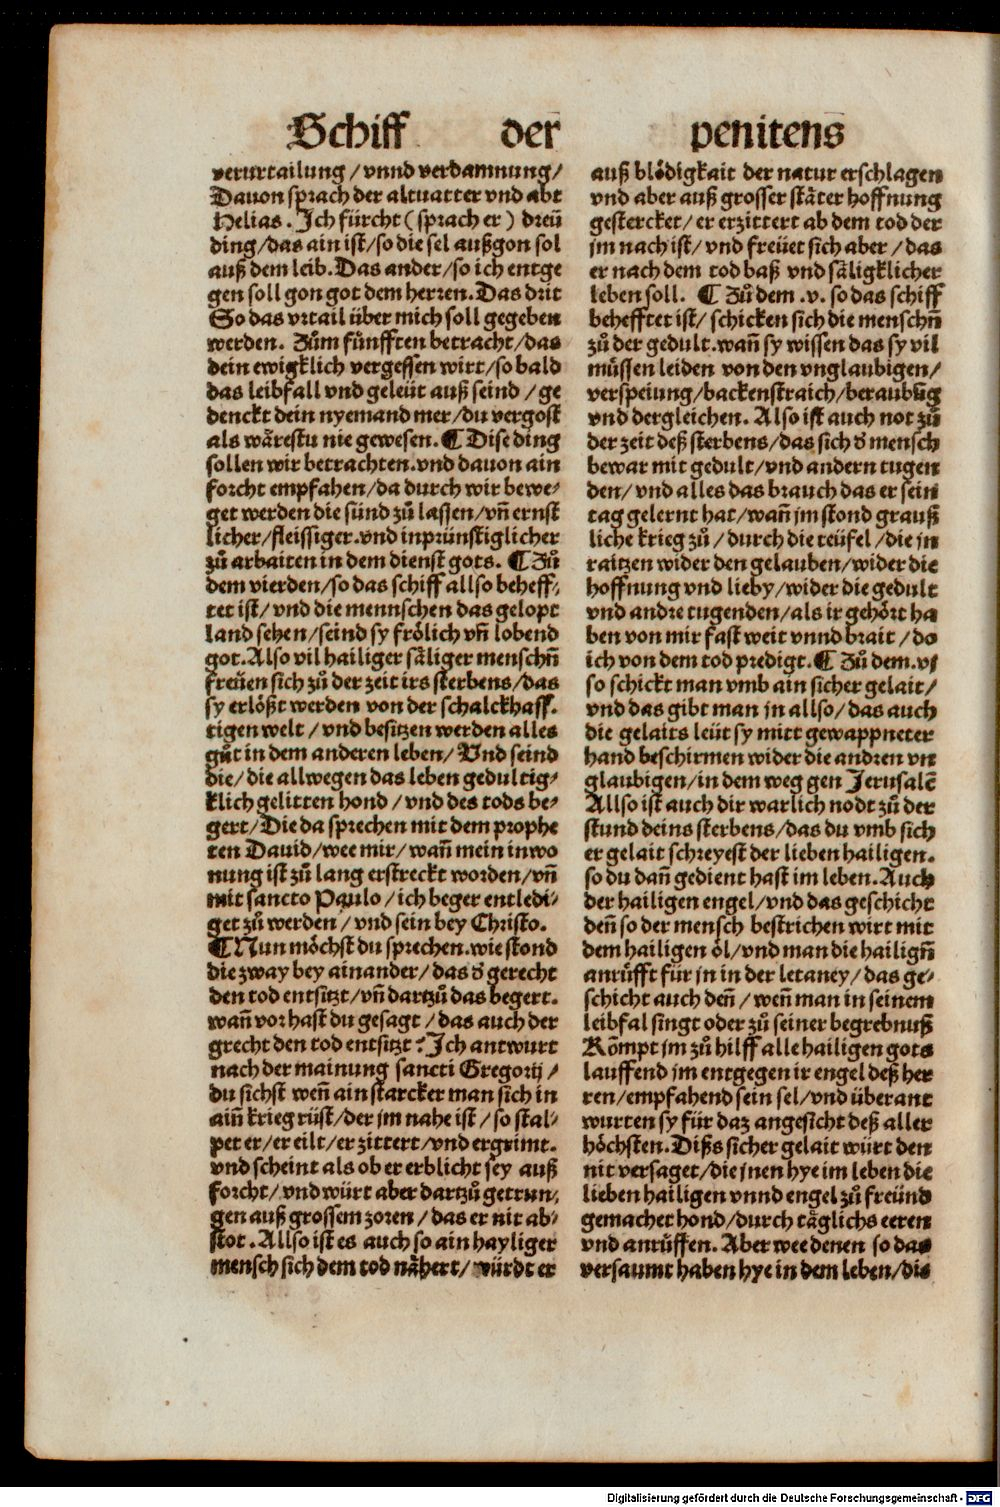 Schiff der penitens
verurtailung / vnnd verdamnung /
Dauon sprach der altuatter vnd abt
Helias . Ich fürcht ( sprach er ) dreü
ding / das ain ist / so die sel außgon sol
auß dem leib. Das ander / so ich entge
gen soll gon got dem herren. Das drit
So das vrtail über mich soll gegeben
werden. Zům fünfften betracht / das
dein ewigklich vergessen wirt / so bald
das leibfall vnd geleüt auß seind / ge
denckt dein nyemand mer / du vergost
als wårestu nie gewesen. ¶ Dise ding
sollen wir betrachten. vnd dauon ain
forcht empfahen / da durch wir bewe⸗
get werden die sünd zů lassen / vñ ernst
licher / fleissiger. vnd inprünstiglicher
zů arbaiten in dem dienst gots. ¶ Zů
dem vierden / so das schiff allso beheff⸗
tet ist / vnd die mennschen das gelopt
land sehen / seind sy frölich vñ lobend
got. Also vil hailiger såliger menschñ
freüen sich zů der zeit irs sterbens / das
sy erlößt werden von der schalckhaff⸗
tigen welt / vnd besitzen werden alles
gůt in dem anderen leben / Vnd seind
die / die allwegen das leben gedultig⸗
klich gelitten hond / vnd des tods be⸗
gert / Die da sprechen mit dem prophe
ten Dauid / wee mir / wañ mein inwo
nung ist zů lang erstreckt worden / vñ
mit sancto Paulo / ich beger entledi⸗
get zů werden / vnd sein bey Christo.
¶ Nun möchst du sprechen. wie stond
die zway bey ainander / das d̕ gerecht
den tod entsitzt / vñ dartzů das begert.
wañ vor hast du gesagt / das auch der
grecht den tod entsitzt ? Ich antwurt
nach der mainung sancti Gregorij /
du sichst weñ ain starcker man sich in
aiñ krieg rüst / der jm nahe ist / so stal⸗
pet er / er eilt / er zittert / vnd ergrimt.
vnd scheint als ob er erblicht sey auß
forcht / vnd würt aber dartzů getrun⸗
gen auß grossem zoren / das er nit ab⸗
stot . Allso ist es auch so ain hayliger
mensch sich dem tod nåhert / würdt er
auß blödigkait der natur erschlagen
vnd aber auß grosser ståter hoffnung
gestercket / er erzittert ab dem tod der
jm nach ist / vnd freüet sich aber / das
er nach dem tod baß vnd såligklicher
leben soll. ¶ Zů dem .v. so das schiff
behefftet ist / schicken sich die menschñ
zů der gedult. wañ sy wissen das sy vil
müssen leiden von den vnglaubigen /
verspeiung / backenstraich / beraubūg
vnd dergleichen. Also ist auch not zů
der zeit deß sterbens / das sich d̕ mensch
bewar mit gedult / vnd andern tugen
den / vnd alles das brauch das er sein
tag gelernt hat / wañ jm stond grauß
liche krieg zů / durch die teüfel / die jn
raitzen wider den gelauben / wider die
hoffnung vnd lieby / wider die gedult
vnd andre tugenden / als ir gehört ha
ben von mir fast weit vnnd brait / do
ich von dem tod predigt. ¶ Zů dem .vj
so schickt man vmb ain sicher gelait /
vnd das gibt man jn allso / das auch
die gelaits leüt sy mitt gewappneter
hand beschirmen wider die andren vn
glaubigen / in dem weg gen Jerusalē
Allso ist auch dir warlich nodt zů der
stund deins sterbens / das du vmb sich
er gelait schreyest der lieben hailigen.
so du dañ gedient hast im leben. Auch
der hailigen engel / vnd das geschicht
deñ so der mensch bestrichen wirt mit
dem hailigen öl / vnd man die hailigñ
anrůfft für jn in der letaney / das ge⸗
schicht auch deñ / weñ man in seinem
leibfal singt oder zů seiner begrebnuß
Kõmpt jm zů hilff alle hailigen gots
lauffend jm entgegen ir engel deß her
ren / empfahend sein sel / vnd überant
wurten sy für daz angesicht deß aller
höchsten. Dißs sicher gelait würt den
nit versaget / die jnen hye im leben die
lieben hailigen vnnd engel zů freünd
gemachet hond / durch tåglichs eeren
vnd anrůffen. Aber wee denen so das
versaumt haben hye in dem leben / die
Digitalisierung gefördert durch die Deutsche Forschungsgemeinschaft - DFG